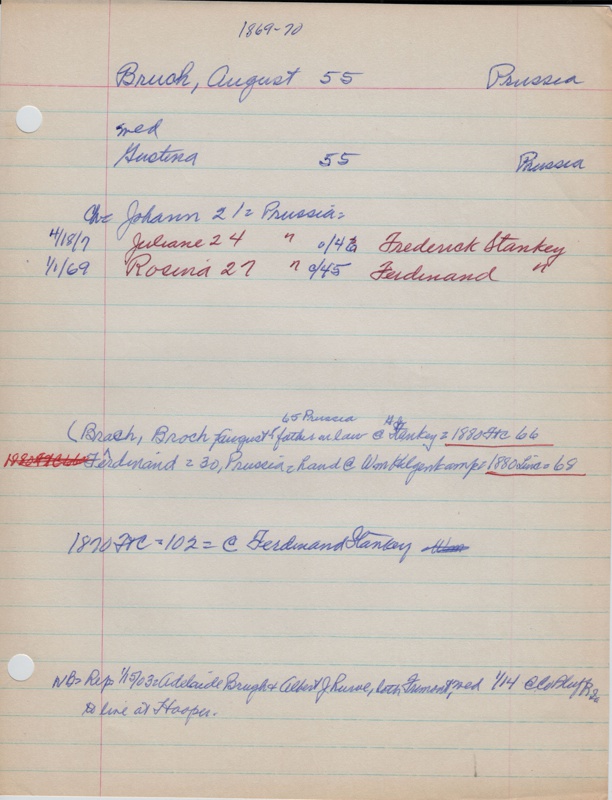 1869-70
Bruch, August 55 Prussia
med
Gustina 55 Prussia
Ch= Johann 21= Prussia=
4/18/7 Juliane 24 " o/4 Frederick Stankey
1/1/69 Rosina 27 " o/45 Ferdinand "
65 Prussia
(Brach, Broch August father in law @ Stankey= 1880 FtC 66
Ferdinand = 30, Prussia= hand @ Wm 1880 Linc= 68
1870 FtC = 102 = @ Ferdinand Stankey
NB= Rep 1/15/03= Adelaide Brugh + Albert J. both Fremont, med 1/14 @ Co Bluffs
to live at Hooper.